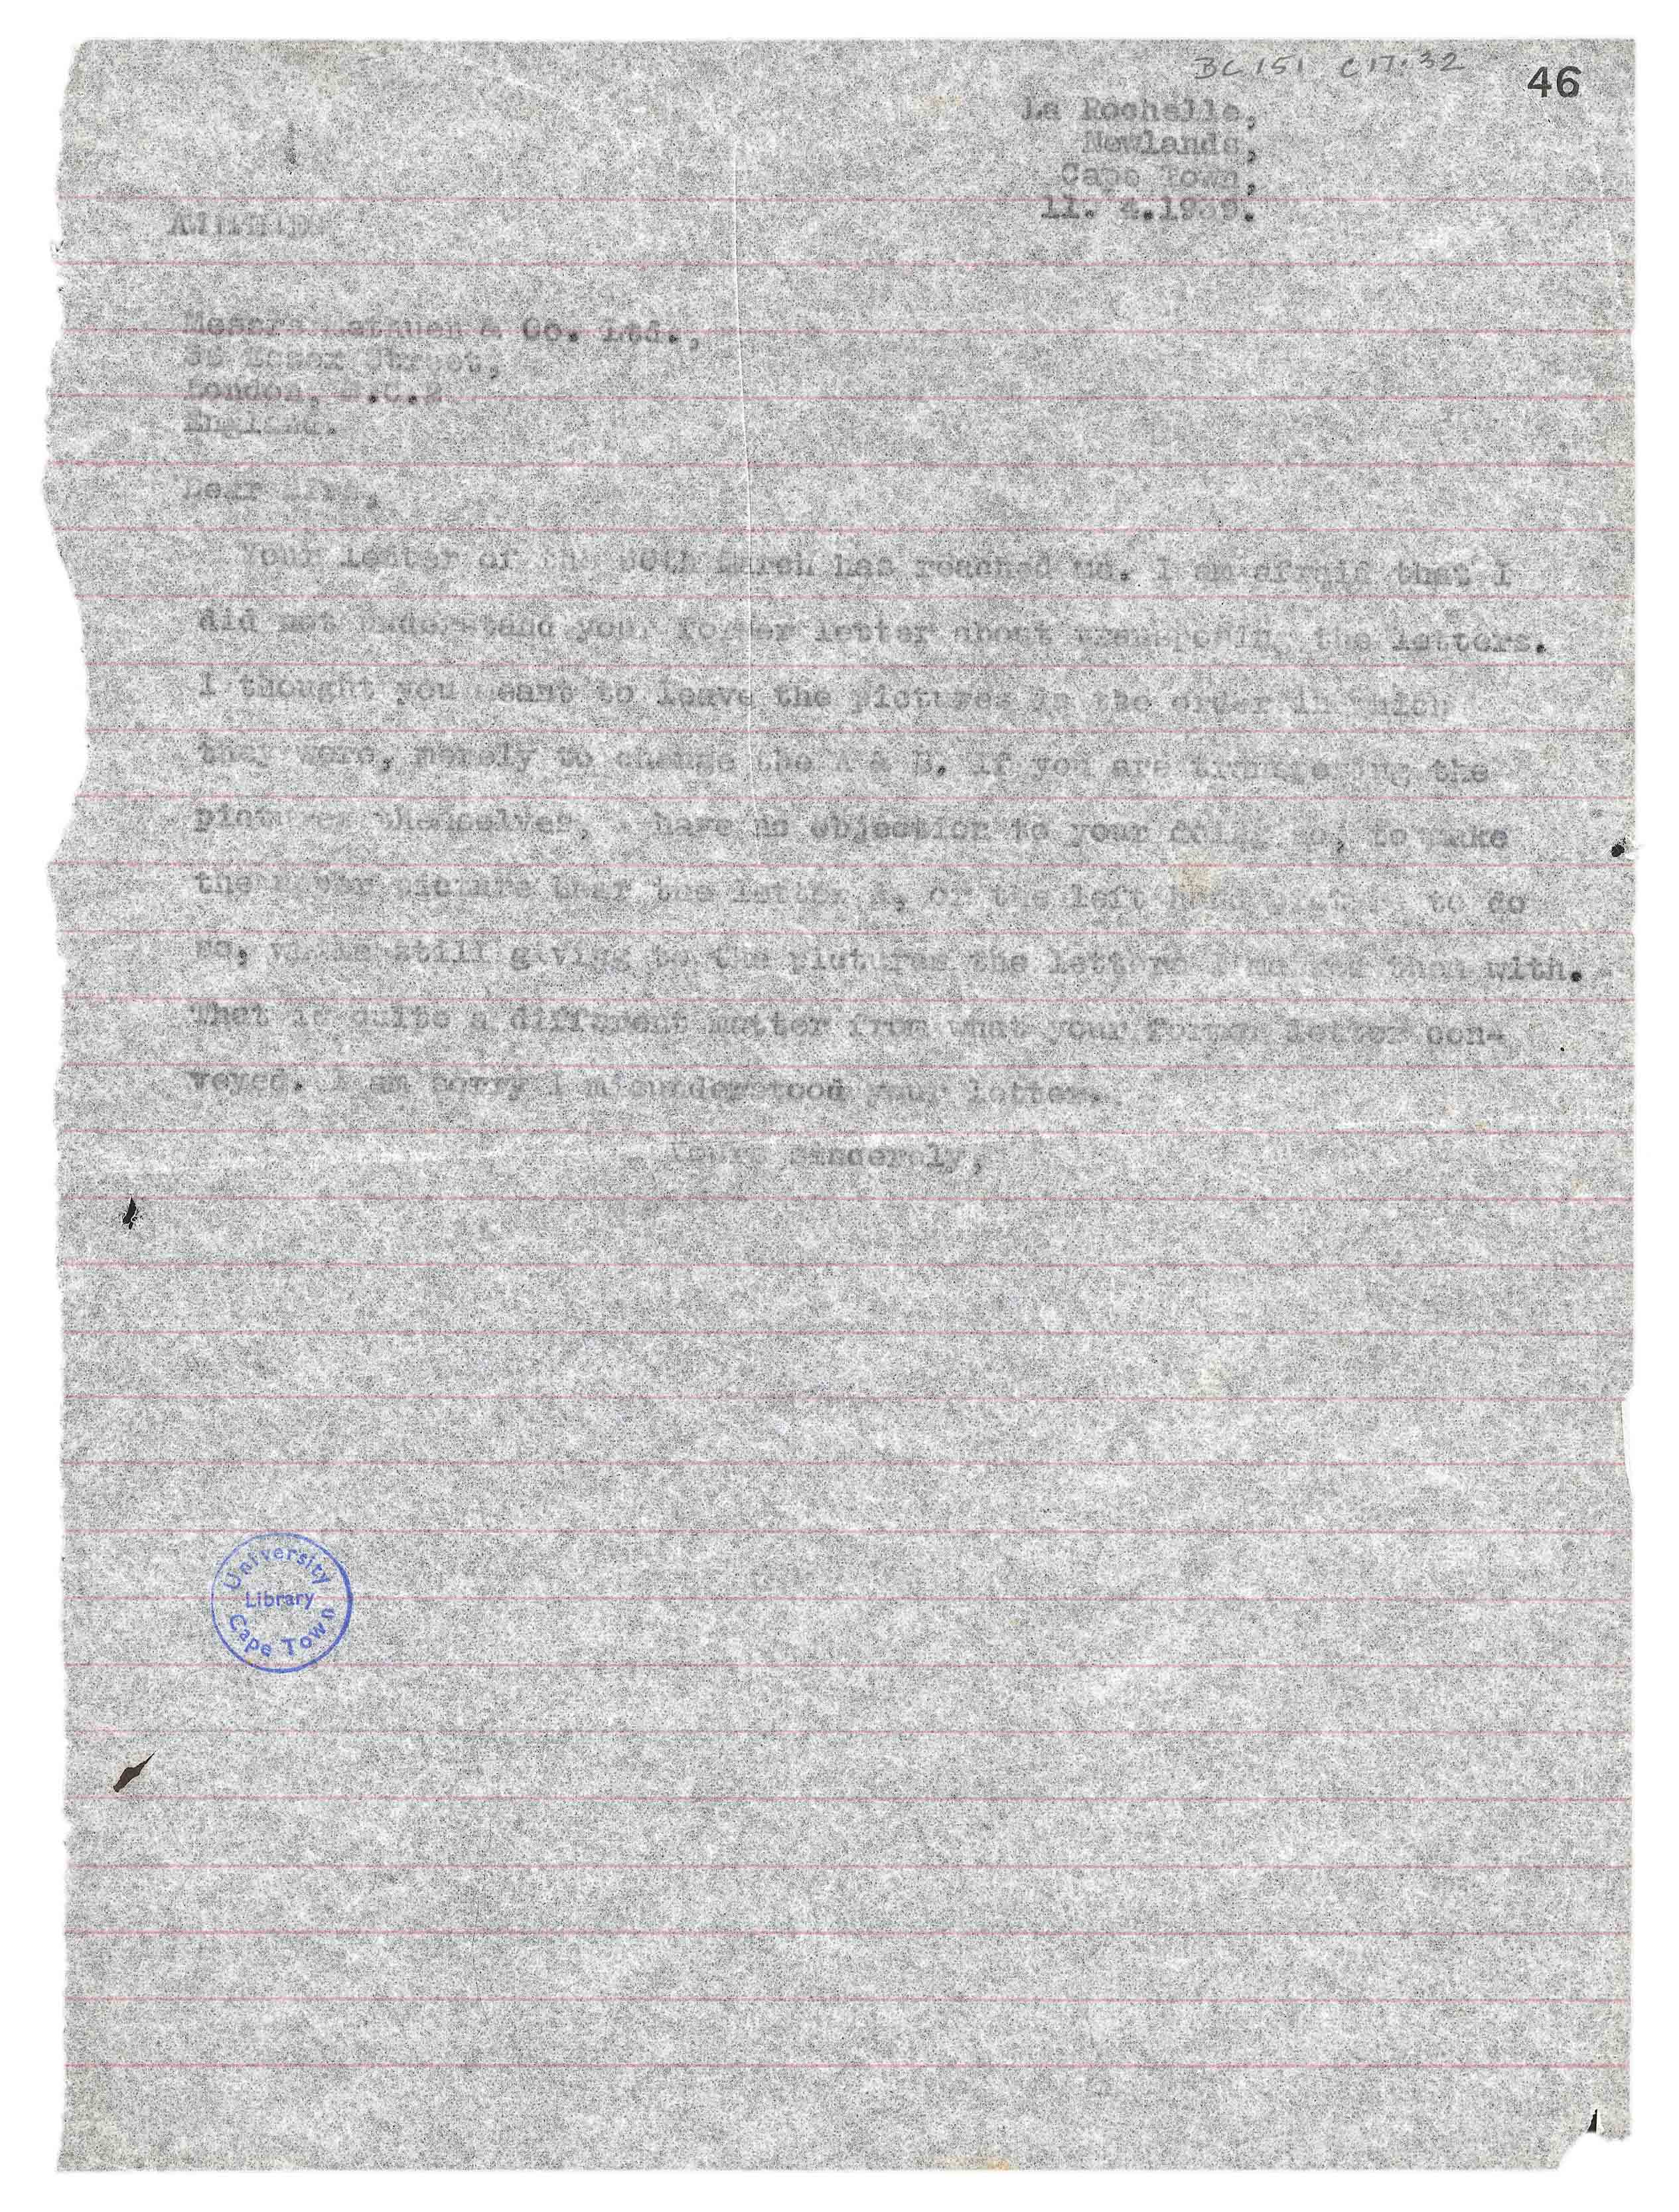 BC 151 C17.32
46
La Rochelle,
Newlands,
Cape Town,
11. 4.1939.
Messrs Methuen & Co. Ltd.,
36 Essex Street,
London, W.C.2
England.
Dear Sirs,
Your letter of the 30th March has reached me. I am afraid that I
did not understand your former letter about transposing the letters.
I thought you meant to leave the pictures in the order in which
they were, merely to change the A & B. If you are the
pictures themselves, I have no objection to your doing so, to make
the picture bear the letter A, or the left hand picture to do
so, while still giving to the pictures the letters I them with.
That is quite a different matter from what your former letter con-
veyed. I am sorry I misunderstood your letter.
Yours sincerely,
University
Library
Cape Town